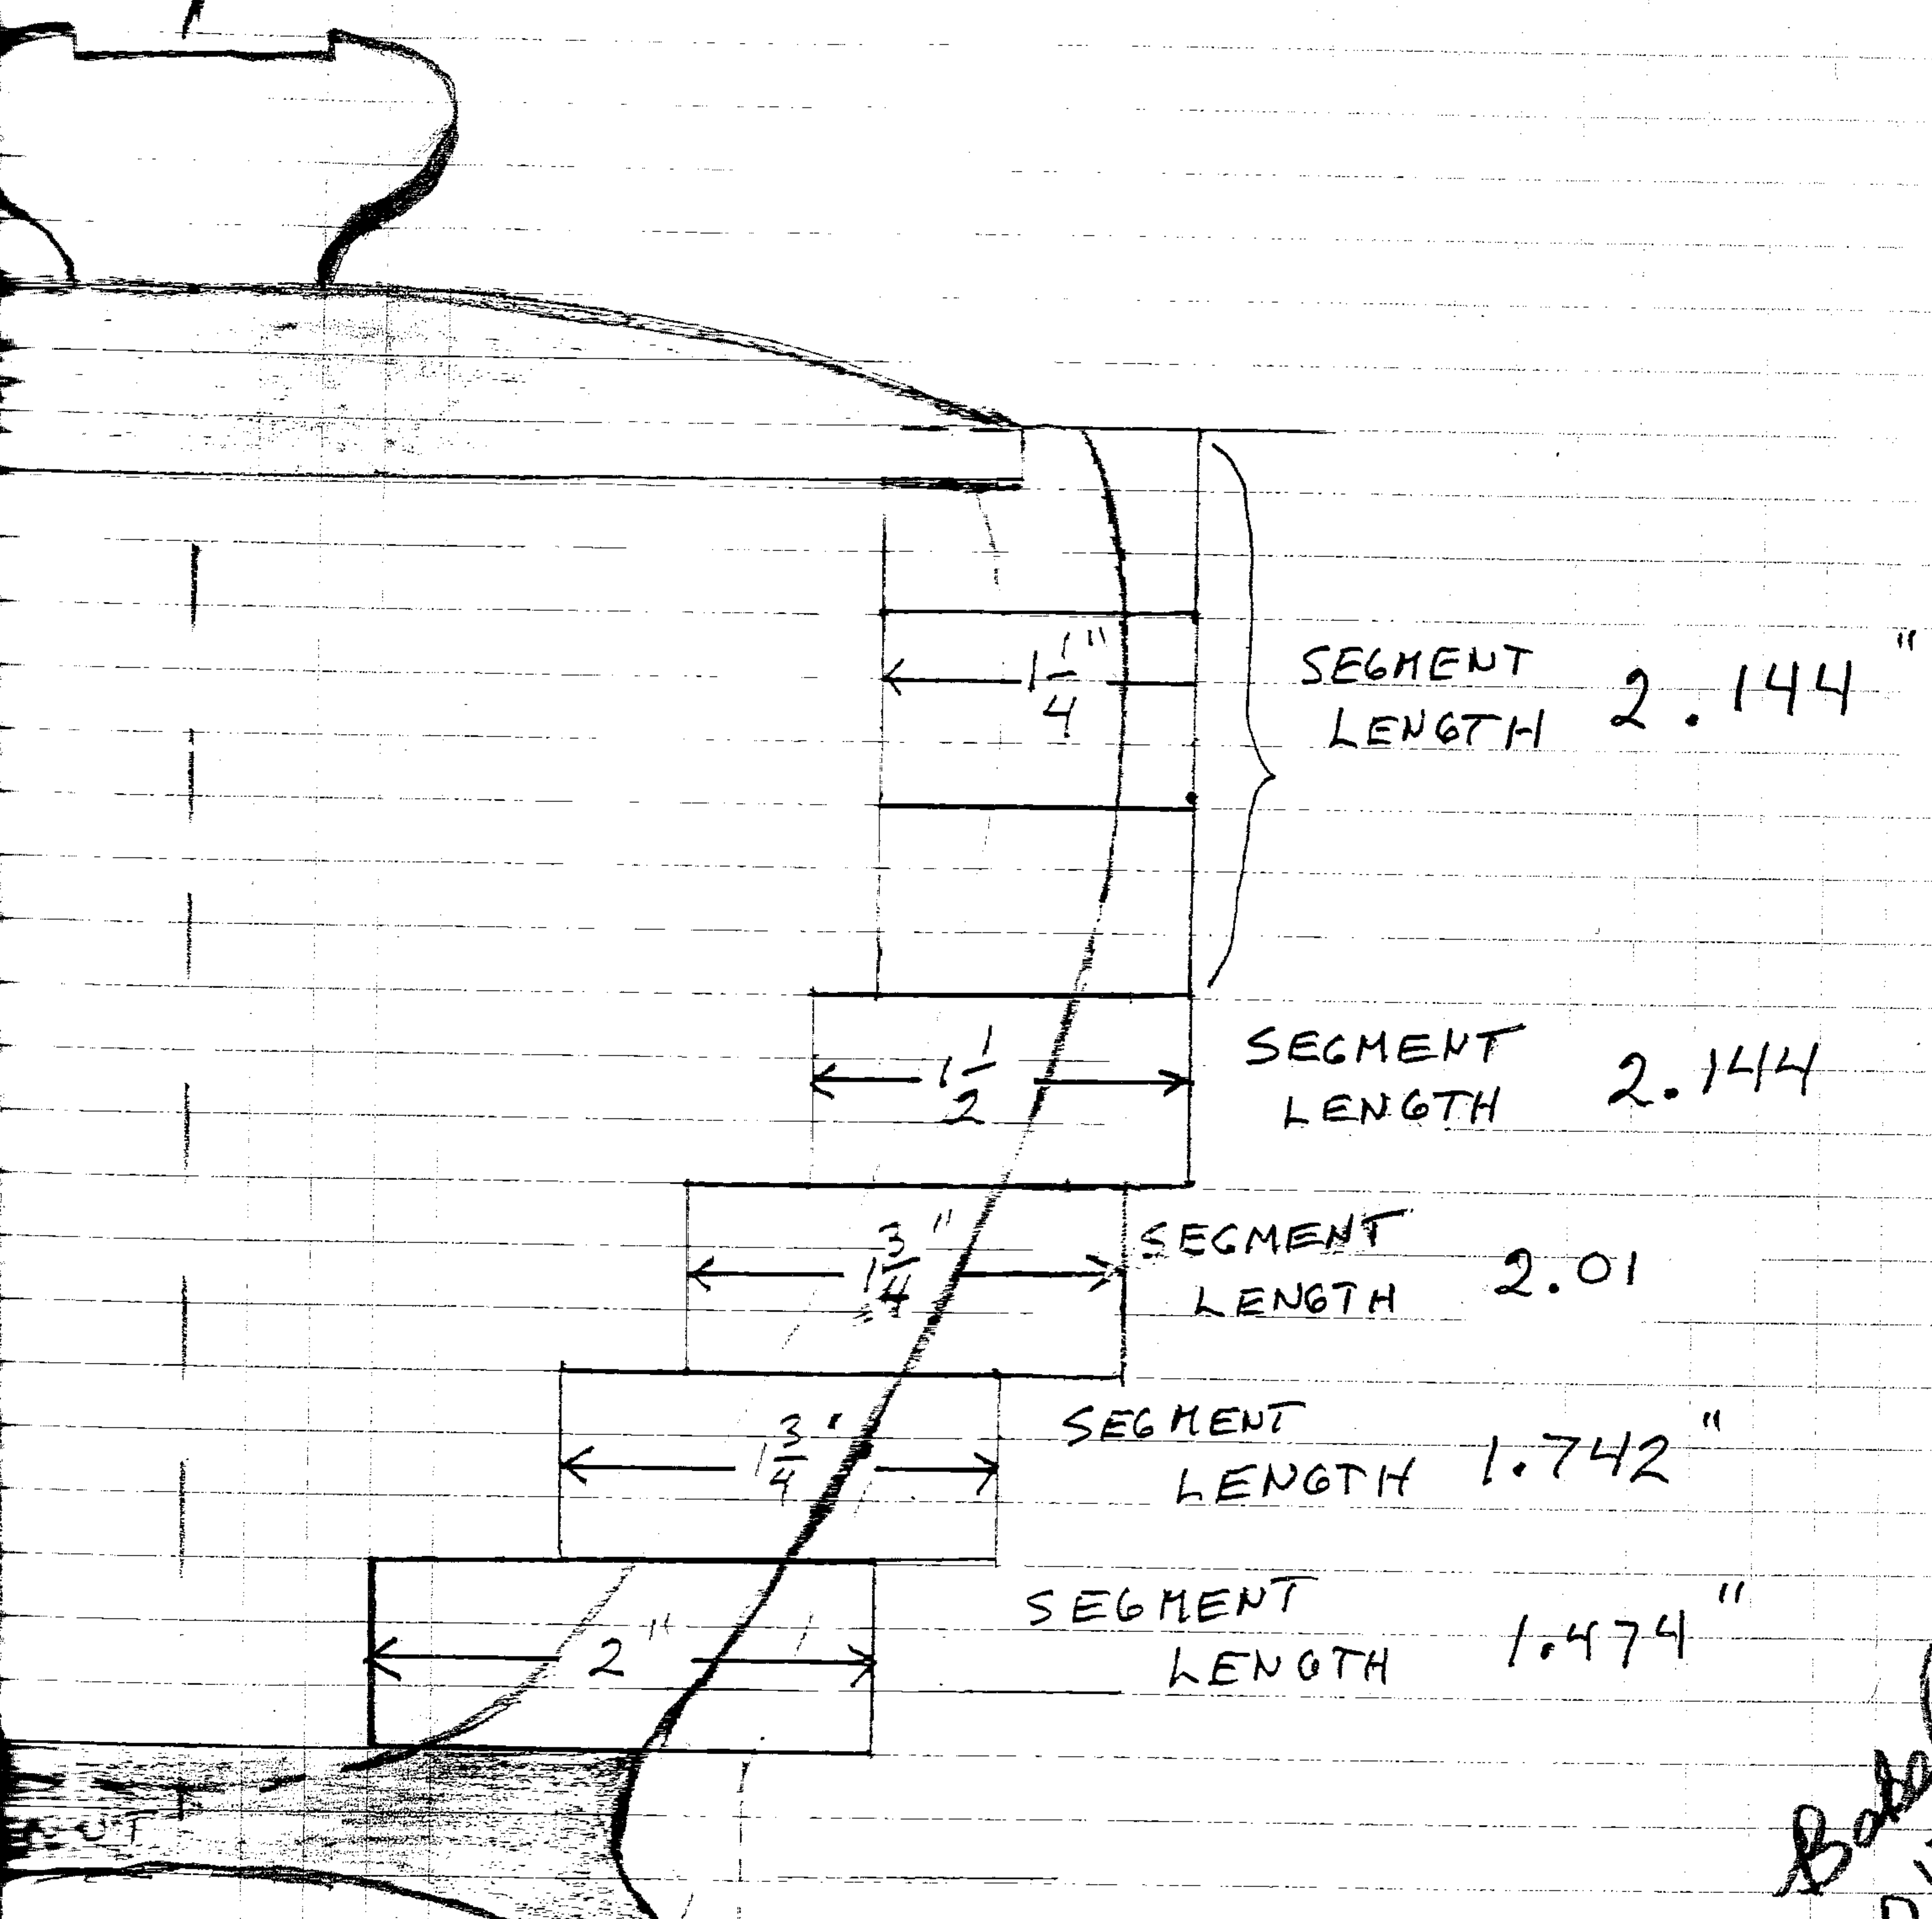 1 1/4 "
SEGMENT
LENGTH 2.144 "
1 1/2
SEGMENT
LENGTH 2.144
1 3/4 "
SEGMENT
LENGTH 2.01
1 3/4 "
SEGMENT
LENGTH 1.742 "
2 "
SEGMENT
LENGTH 1.474 "